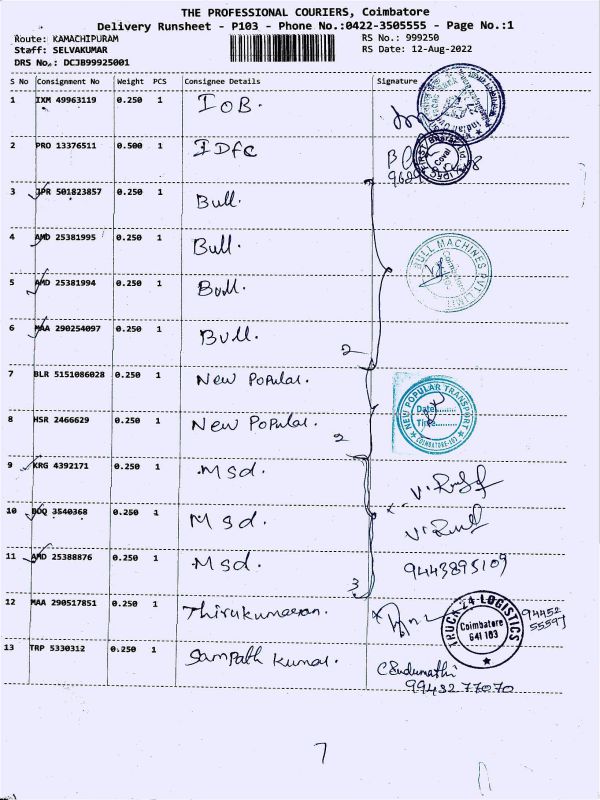 THE PROFESSIONAL COURIERS, Coimbatore
Delivery Runsheet - P103 - Phone No.:0422-3505555 - Page No.:1
Route: KAMACHIPURAM RS No.: 999250
Staff: SELVAKUMAR RS Date: 12-Aug-2022
DRS No.: DCJB99925001
S No Consignment No Weight PCS Consignee Details Signature
1 IXM 49963119 0.250 1 IOB.
2 PRO 13376511 0.500 1 IDFC
3 JPR 501823857 0.250 1 Bull.
4 AMD 25381995 0.250 1 Bull.
BULL MACHINES PVT LIMIT
5 AMD 25381994 0.250 1 Bull.
6 MAA 290254097 0.250 1 Bull.
2
7 BLR 5151086028 0.250 1 New Popular.
NEW POPULAR TRANSPORT
Date.........
Time.........
COIMBATORE
8 HSR 2466629 0.250 1 New Popular.
2
9 KRG 4392171 0.250 1 Msd.
10 BDQ 3540368 0.250 1 Msd.
11 AMD 25388876 0.250 1 Msd. 9443895109
3
12 MAA 290517851 0.250 1 Thirukumaran.
TRUCK 24 LOGISTICS
Coimbatore
641 103
94452
55597
13 TRP 5330312 0.250 1 Sampath Kumar. C Sudumathi
99432 77070
7